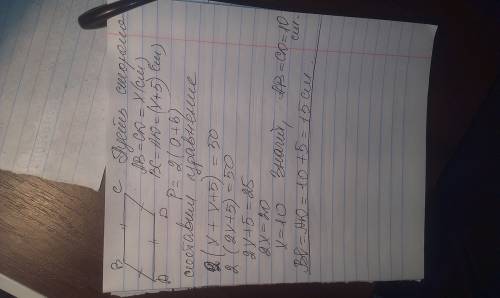 B C Пусть сторона
AB = CD = x (см)
A D BC = AD = (x+5) (см)
P = 2(a+b)
составим уравнение
2(x + x+5) = 50
2(2x+5) = 50
2x+5 = 25
2x = 20
x = 10 Значит, AB = CD = 10 см.
BC = AD = 10 + 5 = 15 см.